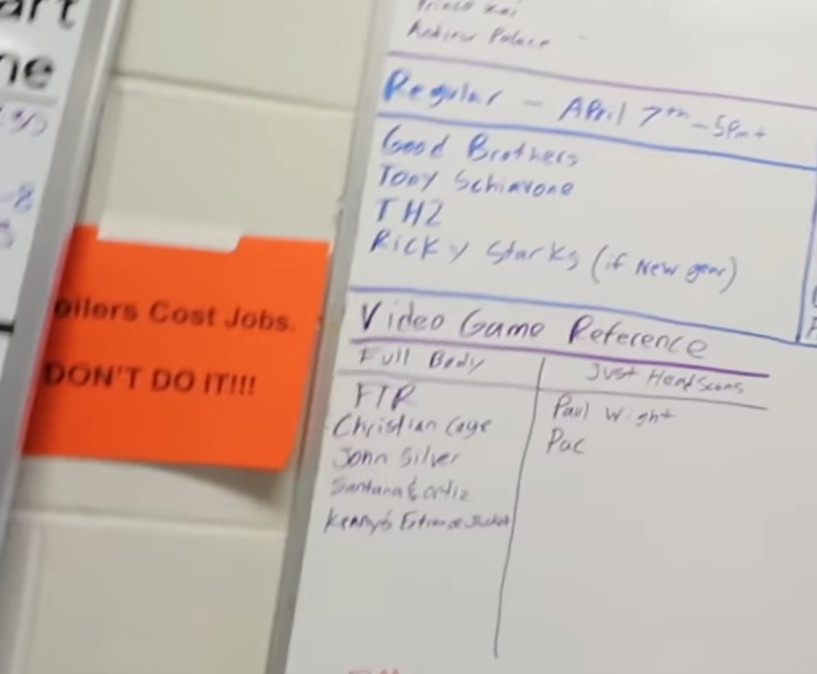 art
ne
Andrew Palace
Regular - April 7th - 5pm+
Good Brothers
Tony Schiavone
TH2
Ricky Starks (if New gear)
oilers Cost Jobs.
DON'T DO IT!!!
Video Game Reference
Full Body
Just Head Scans
FTR
Paul Wight
Christian Cage
Pac
John Silver
Santana & Ortiz
Kenny's Entrance Jacket